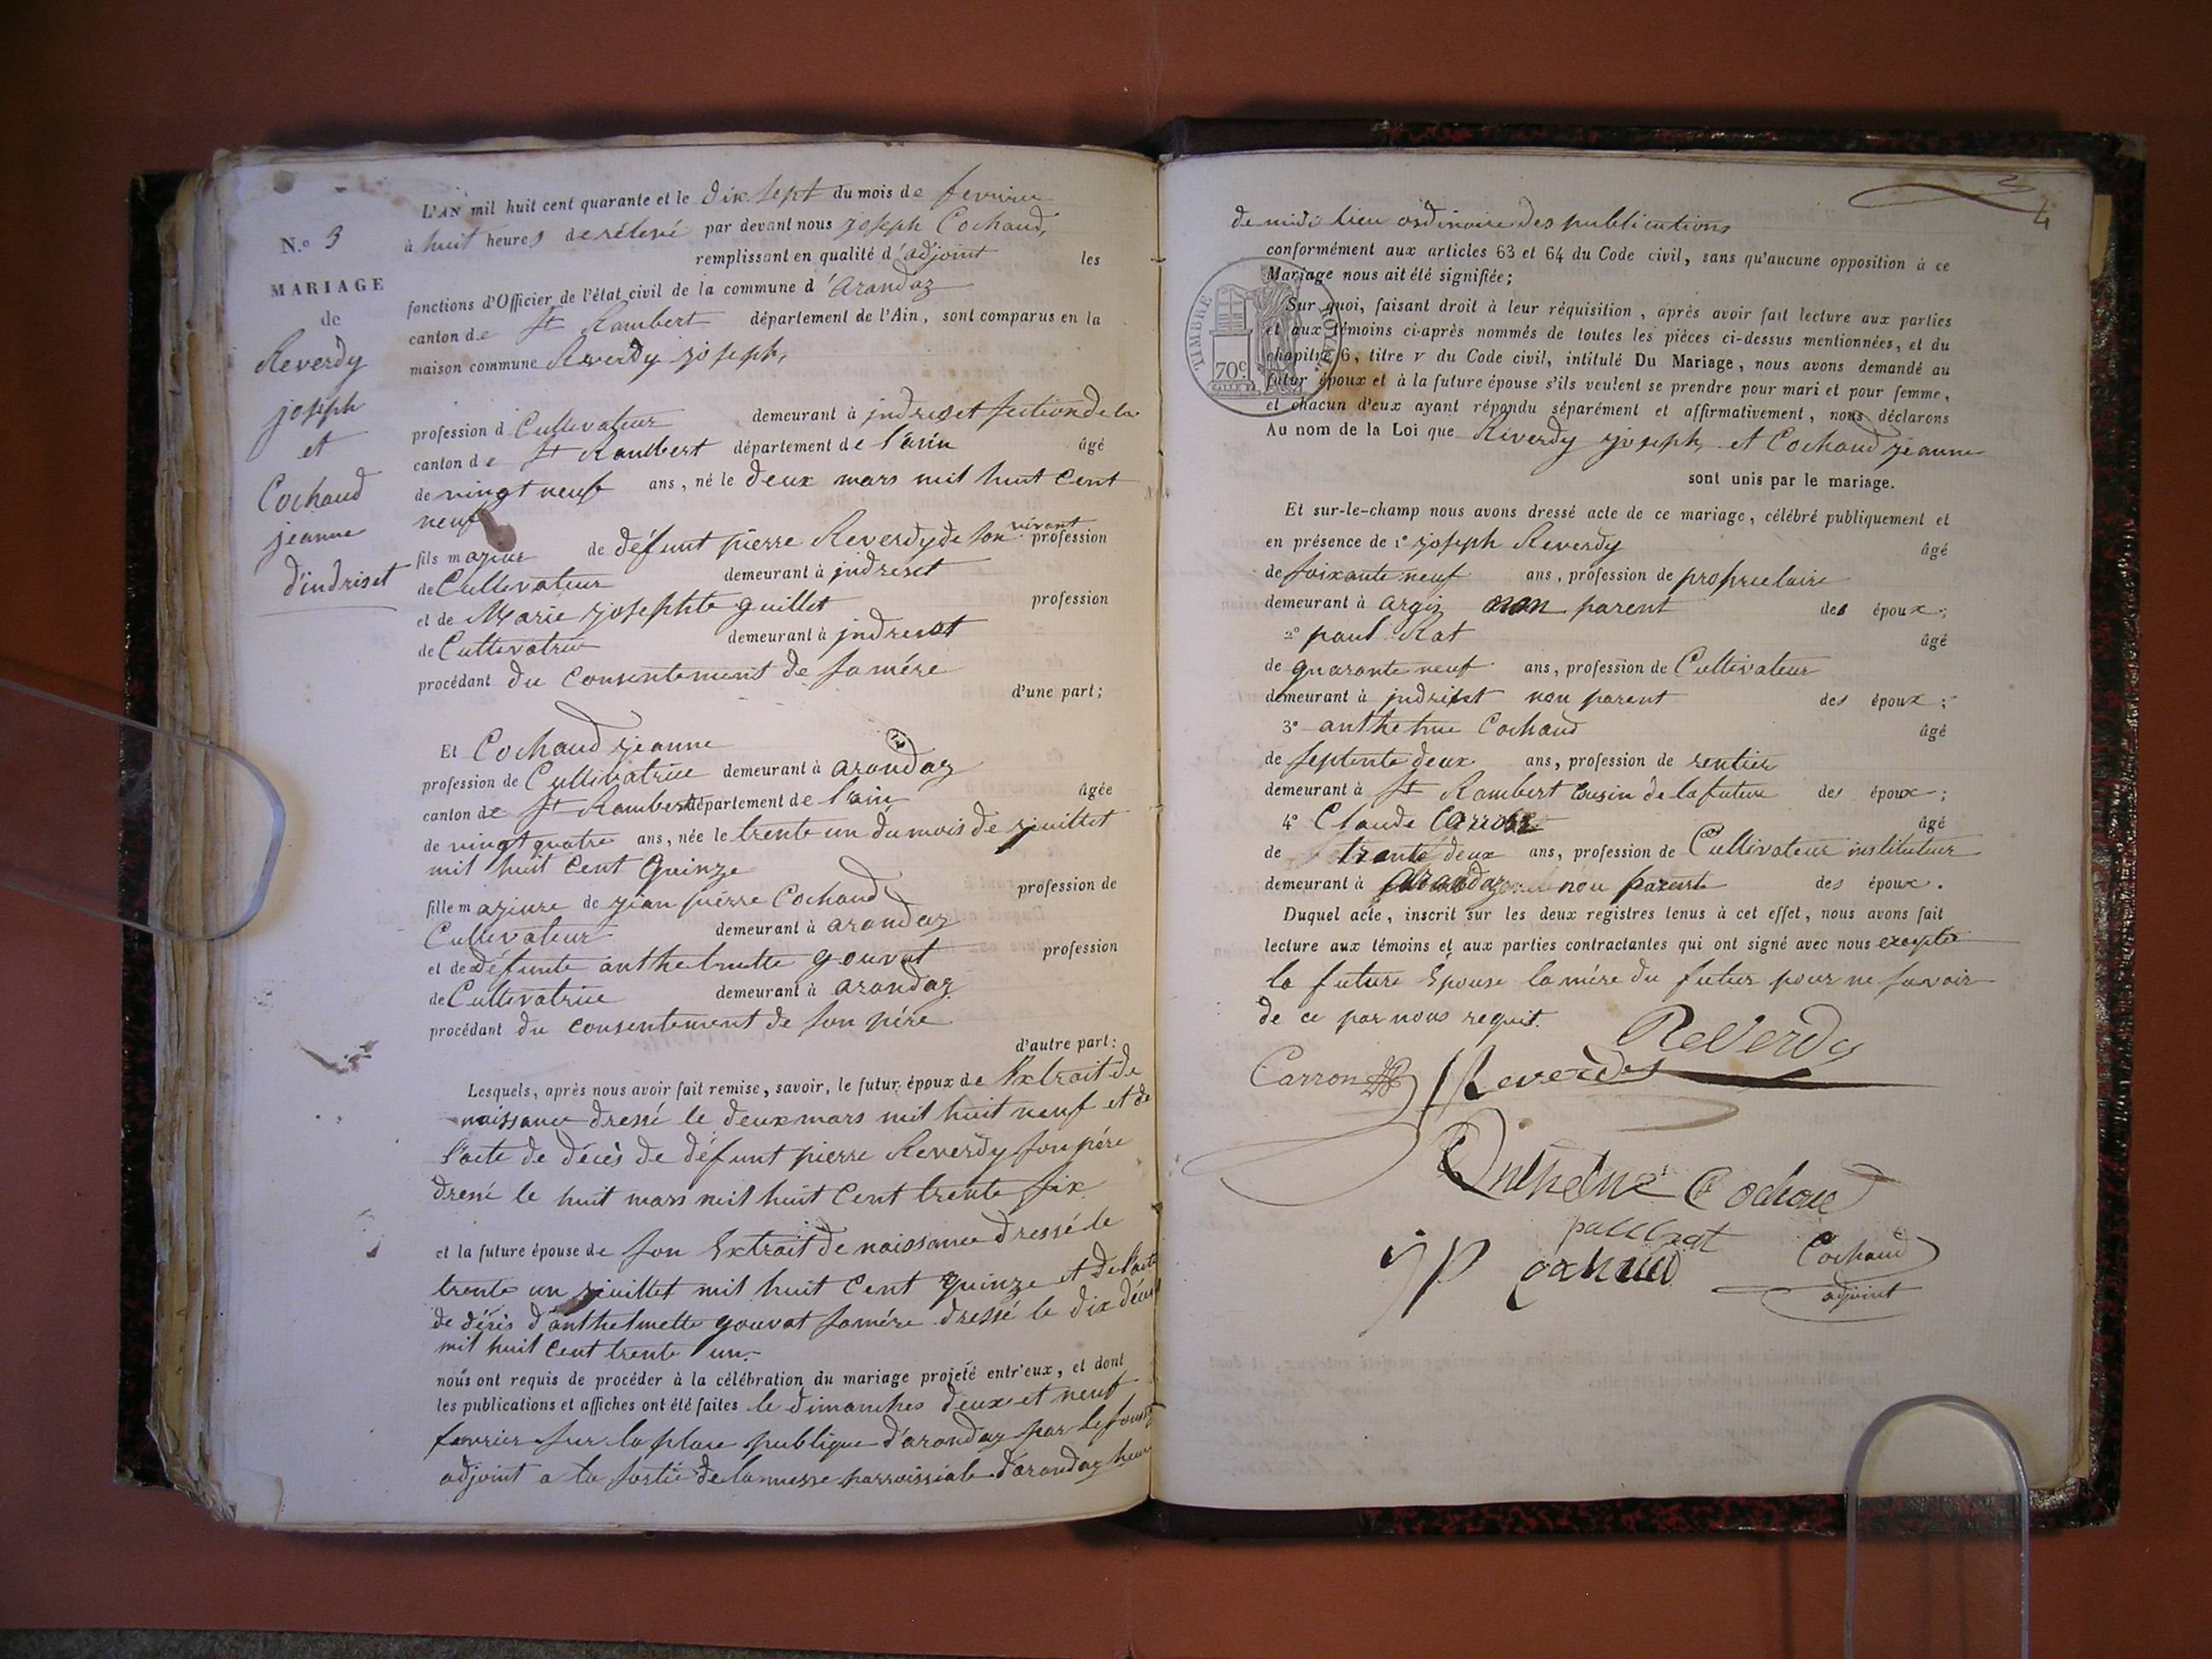 N.o 3
MARIAGE
de
Reverdy
joseph
et
Cochaud
jeanne
d'indriset
L'AN mil huit cent quarante et le dix sept du mois de fevrier
à huit heures de rélevé par devant nous joseph Cochaud,
remplissant en qualité d'adjoint les
fonctions d'Officier de l'état civil de la commune d'arandaz
canton de St Rambert département de l'Ain, sont comparus en la
maison commune Reverdy joseph,
profession d Cultivateur demeurant à indriset section de la
canton de St Rambert département de l'ain âgé
de vingt neuf ans, né le deux mars mil huit Cent
neuf
fils majeur de défunt pierre Reverdy de son vivant profession
de Cultivateur demeurant à indriset
et de Marie josephte guillet profession
de Cultivatrice demeurant à indriset
procédant du consentement de sa mére
d'une part;
Et Cochaud jeanne
profession de Cultivatrice demeurant à arandaz
canton de St Rambert département de l'ain âgée
de vingt quatre ans, née le trente un du mois de juillet
mil huit Cent Quinze
fille majeure de jean pierre Cochaud profession de
Cultivateur demeurant à arandaz
et de défunte anthelmette gouvat profession
de Cultivatrice demeurant à arandaz
procédant du consentement de son pére
d'autre part:
Lesquels, après nous avoir fait remise, savoir, le futur époux de l'Extrait de
naissance dressé le deux mars mil huit neuf et de
l'acte de décès de défunt pierre Reverdy son pére
dressé le huit mars mil huit Cent trente six
et la future épouse de son Extrait de naissance dressé le
trente un juillet mil huit Cent quinze et de l'acte
de décès d'anthelmette gouvat sa mére dressé le dix
mil huit Cent trente un.
nous ont requis de procéder à la célébration du mariage projeté entr'eux, et dont
les publications et affiches ont été faites le dimanches deux et neuf
fevrier sur la place publique d'arandaz par le
adjoint a la sortie de la messe parroissiale d'arandaz heure
4
de midi lieu ordinaire des publications
conformément aux articles 63 et 64 du Code civil, sans qu'aucune opposition à ce
Mariage nous ait été signifiée;
TIMBRE ROYAL
70c
Sur quoi, faisant droit à leur réquisition, après avoir fait lecture aux parties
et aux témoins ci-après nommés de toutes les pièces ci-dessus mentionnées, et du
chapitre 6, titre v du Code civil, intitulé Du Mariage, nous avons demandé au
futur époux et à la future épouse s'ils veulent se prendre pour mari et pour femme,
et chacun d'eux ayant répondu séparément et affirmativement, nous déclarons
Au nom de la Loi que Reverdy joseph, et Cochaud jeanne
sont unis par le mariage.
Et sur-le-champ nous avons dressé acte de ce mariage, célébré publiquement et
en présence de 1o joseph Reverdy âgé
de soixante neuf ans, profession de proprietaire
demeurant à argis non parent des époux;
2o paul Rat âgé
de quarante neuf ans, profession de Cultivateur
demeurant à indriset non parent des époux;
3o anthelme Cochaud âgé
de septente deux ans, profession de rentier
demeurant à St Rambert cousin de la future des époux;
4o Claude Carron âgé
de trente deux ans, profession de Cultivateur instituteur
demeurant à arandaz non parent des époux.
Duquel acte, inscrit sur les deux registres tenus à cet effet, nous avons fait
lecture aux témoins et aux parties contractantes qui ont signé avec nous excepté
la future Epouse la mére du futur pour ne savoir
de ce par nous requit.
ReVerdy
Carron Reverdy
Anthelme Cochaud
paul rat
jp Cochaud Cochaud
adjoint